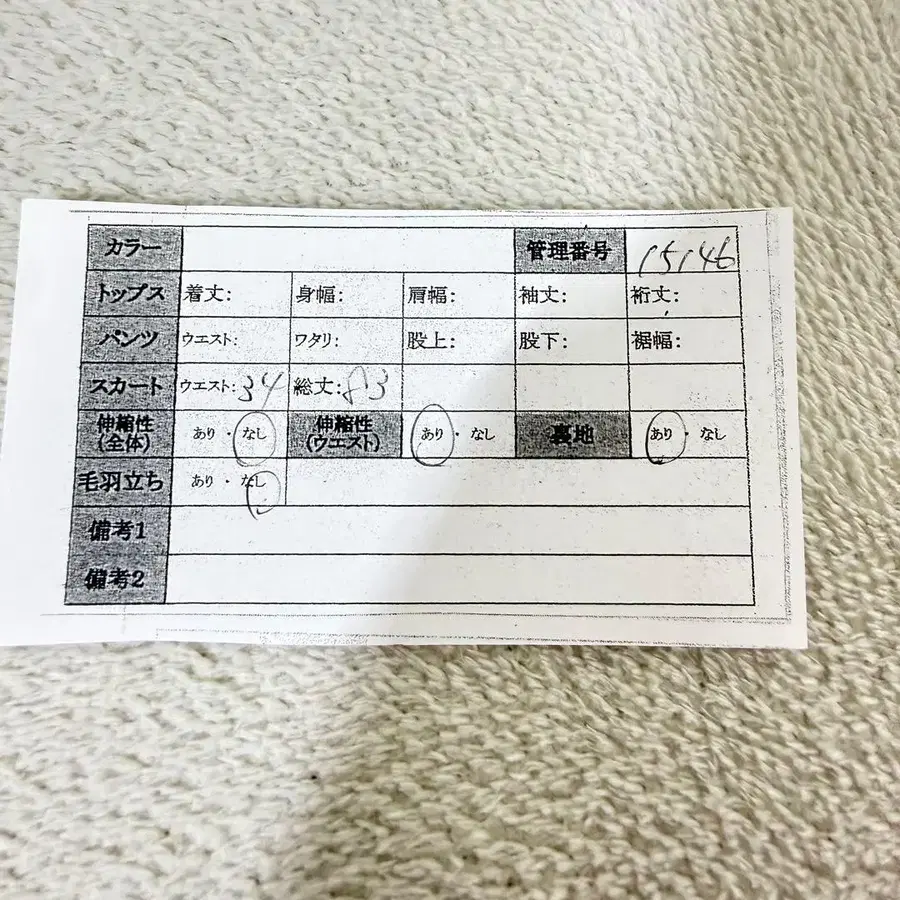 カラー 管理番号 15146
トップス 着丈: 身幅: 肩幅: 袖丈: 裄丈:
パンツ ウエスト: ワタリ: 股上: 股下: 裾幅:
スカート ウエスト: 34 総丈: 83
伸縮性(全体) あり・なし 伸縮性(ウエスト) あり・なし 裏地 あり・なし
毛羽立ち あり・なし
備考1
備考2